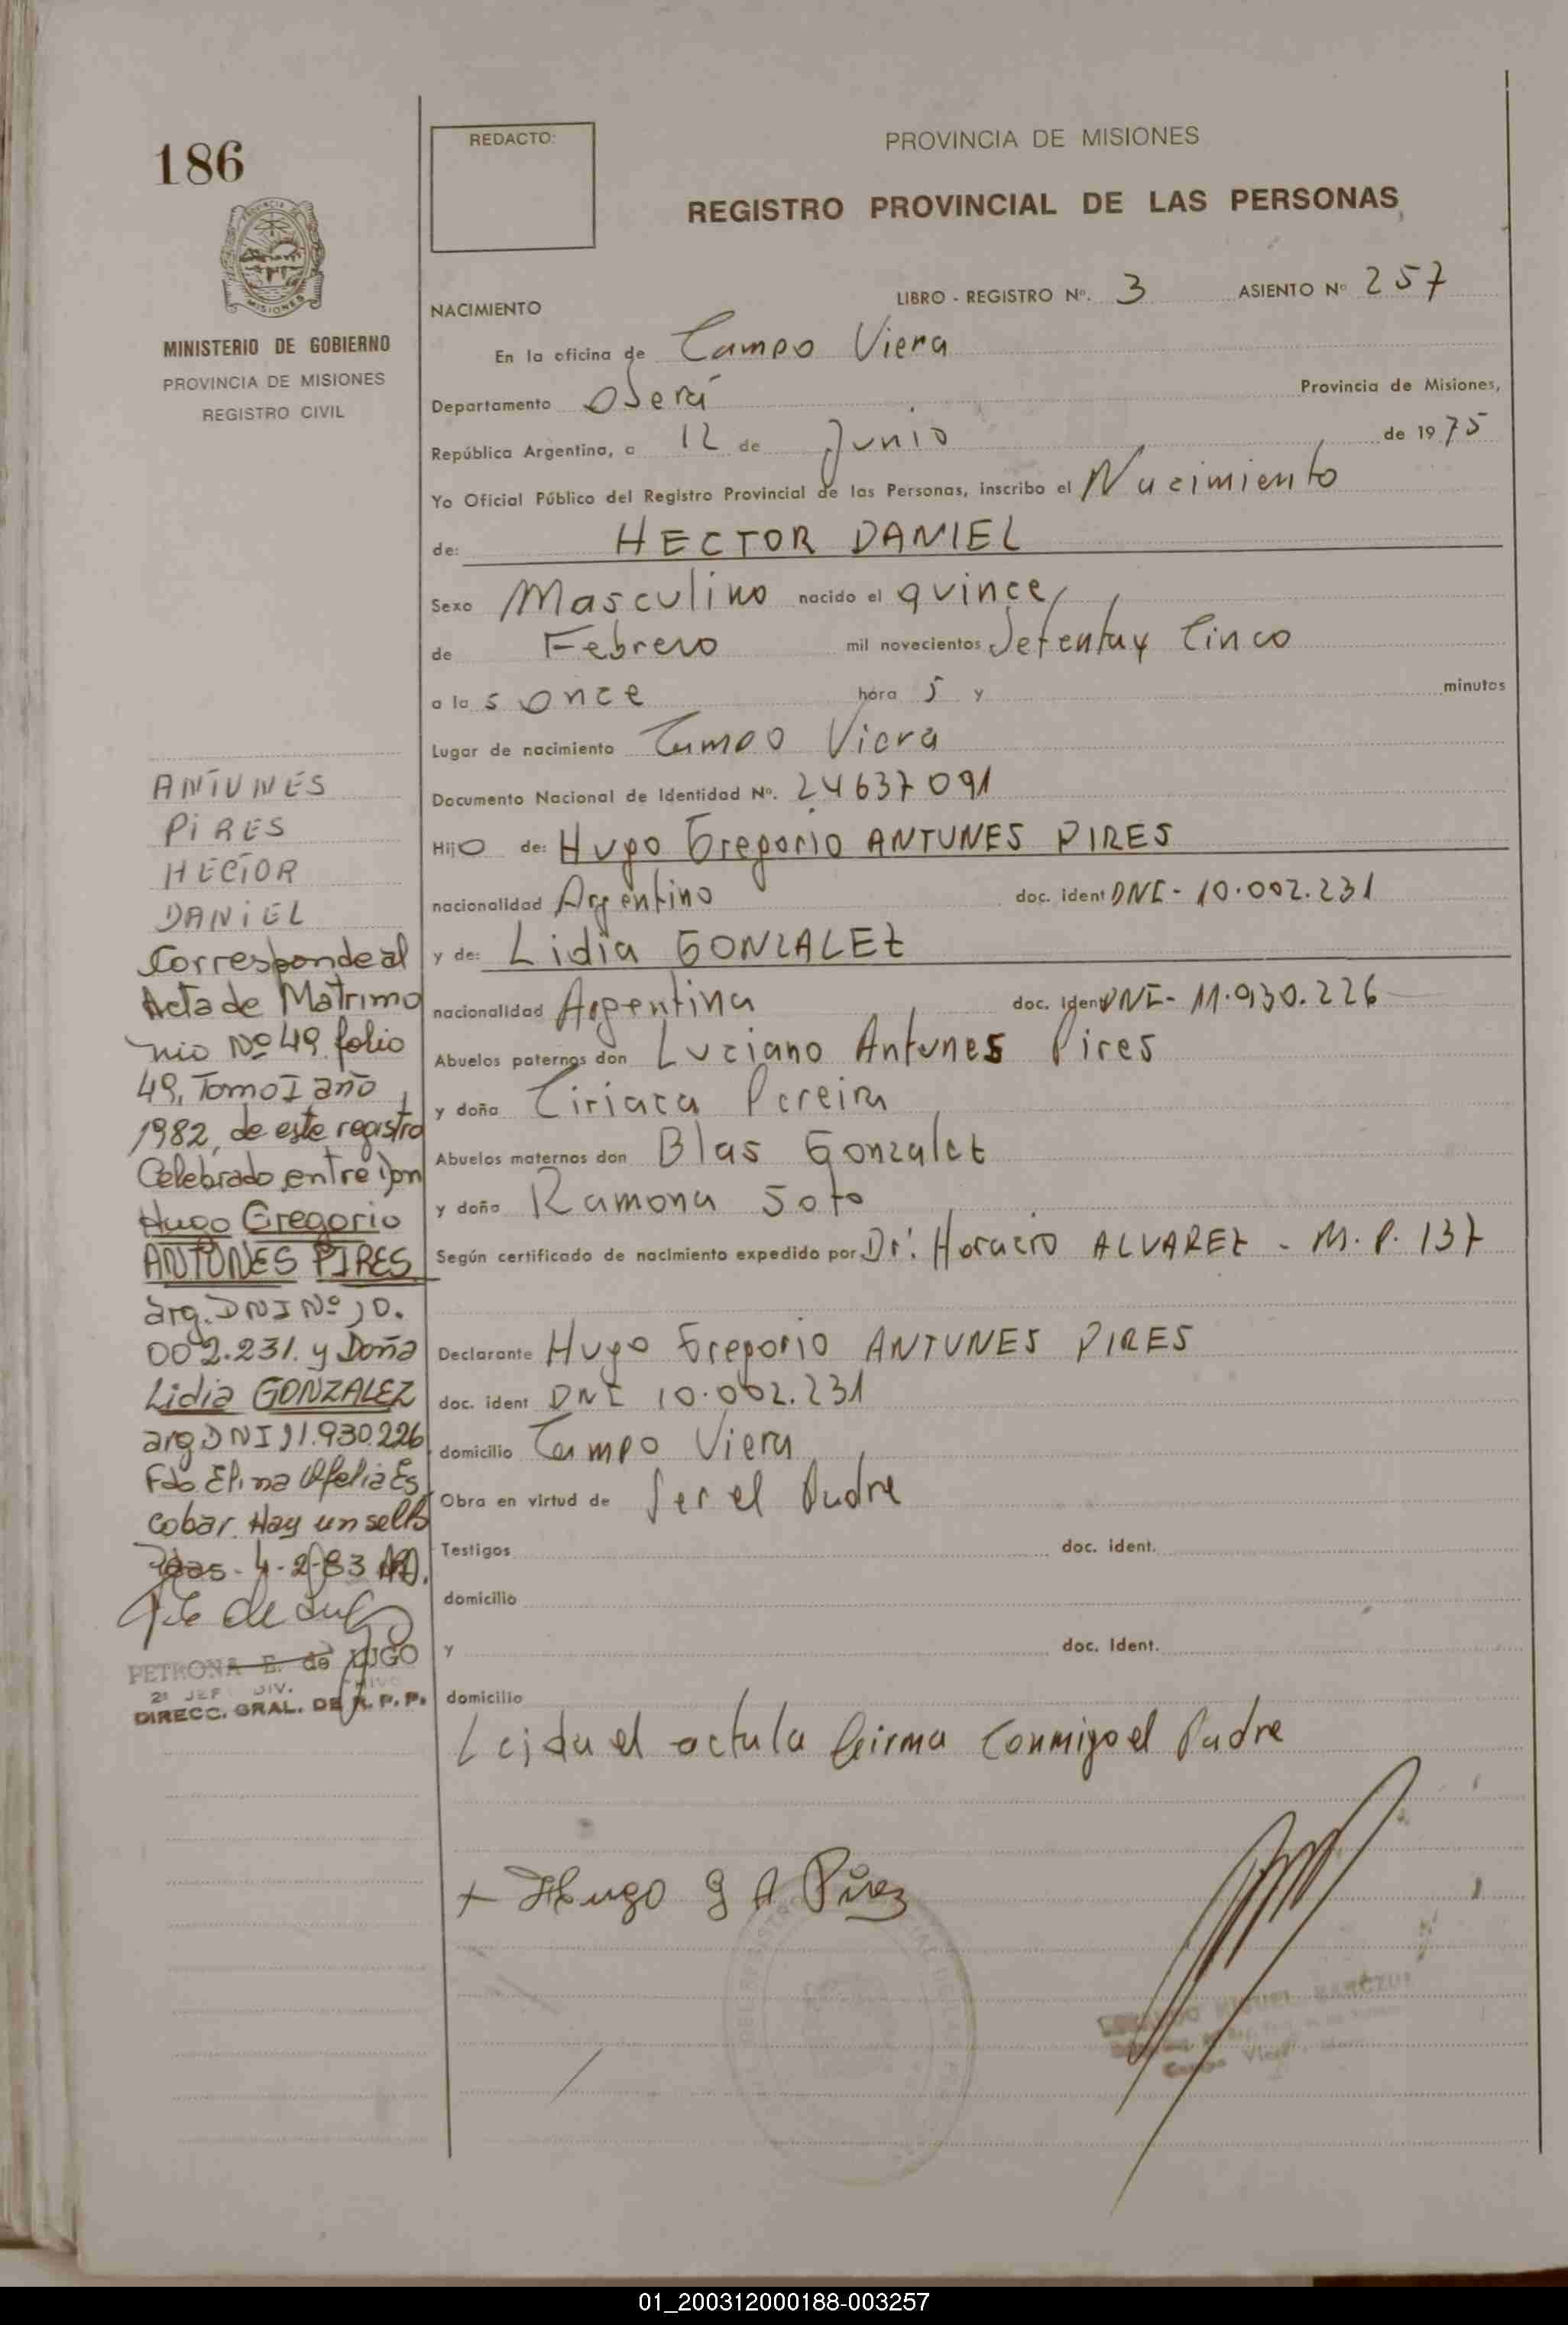 186
MINISTERIO DE GOBIERNO
PROVINCIA DE MISIONES
REGISTRO CIVIL
REDACTO:
PROVINCIA DE MISIONES
REGISTRO PROVINCIAL DE LAS PERSONAS
LIBRO - REGISTRO Nº. 3 ASIENTO Nº 257
NACIMIENTO
En la oficina de Campo Viera
Departamento Oberá Provincia de Misiones,
República Argentina, a 12 de Junio de 1975
Yo Oficial Público del Registro Provincial de las Personas, inscribo el Nacimiento
de: HECTOR DANIEL
Sexo Masculino nacido el quince
de Febrero mil novecientos Setentay Cinco
a las once horas y minutos
Lugar de nacimiento Campo Viera
Documento Nacional de Identidad Nº. 24637091
Hijo de: Hugo Gregorio ANTUNES PIRES
nacionalidad Argentino doc. ident DNI - 10.002.231
y de: Lidia GONZALEZ
nacionalidad Argentina doc. Ident DNI - 11.930.226
Abuelos paternos don Luciano Antunes Pires
y doña Ciriaca Pereira
Abuelos maternos don Blas Gonzalez
y doña Ramona Soto
Según certificado de nacimiento expedido por Dr. Horacio ALVAREZ - M.P. 137
Declarante Hugo Gregorio ANTUNES PIRES
doc. ident DNI 10.002.231
domicilio Campo Viera
Obra en virtud de Ser el Padre
Testigos doc. ident.
domicilio
y doc. Ident.
domicilio
Leida el acta la firma conmigo el Padre
+ Hugo G A Pirez
ANTUNES
PIRES
HECTOR
DANIEL
Corresponde al
Acta de Matrimo
nio Nº 49 folio
49, Tomo I año
1982, de este registro
Celebrado entre Don
Hugo Gregorio
ANTUNES PIRES
arg. DNI Nº 10.
002.231. y Doña
Lidia GONZALEZ
arg DNI 11.930.226
Fdo Elina Ofelia Es
cobar. Hay un sello
4-2-83
PETRONA E. de LUGO
2º JEF DIV.
DIRECC. GRAL. DE R. P. P.
01_200312000188-003257